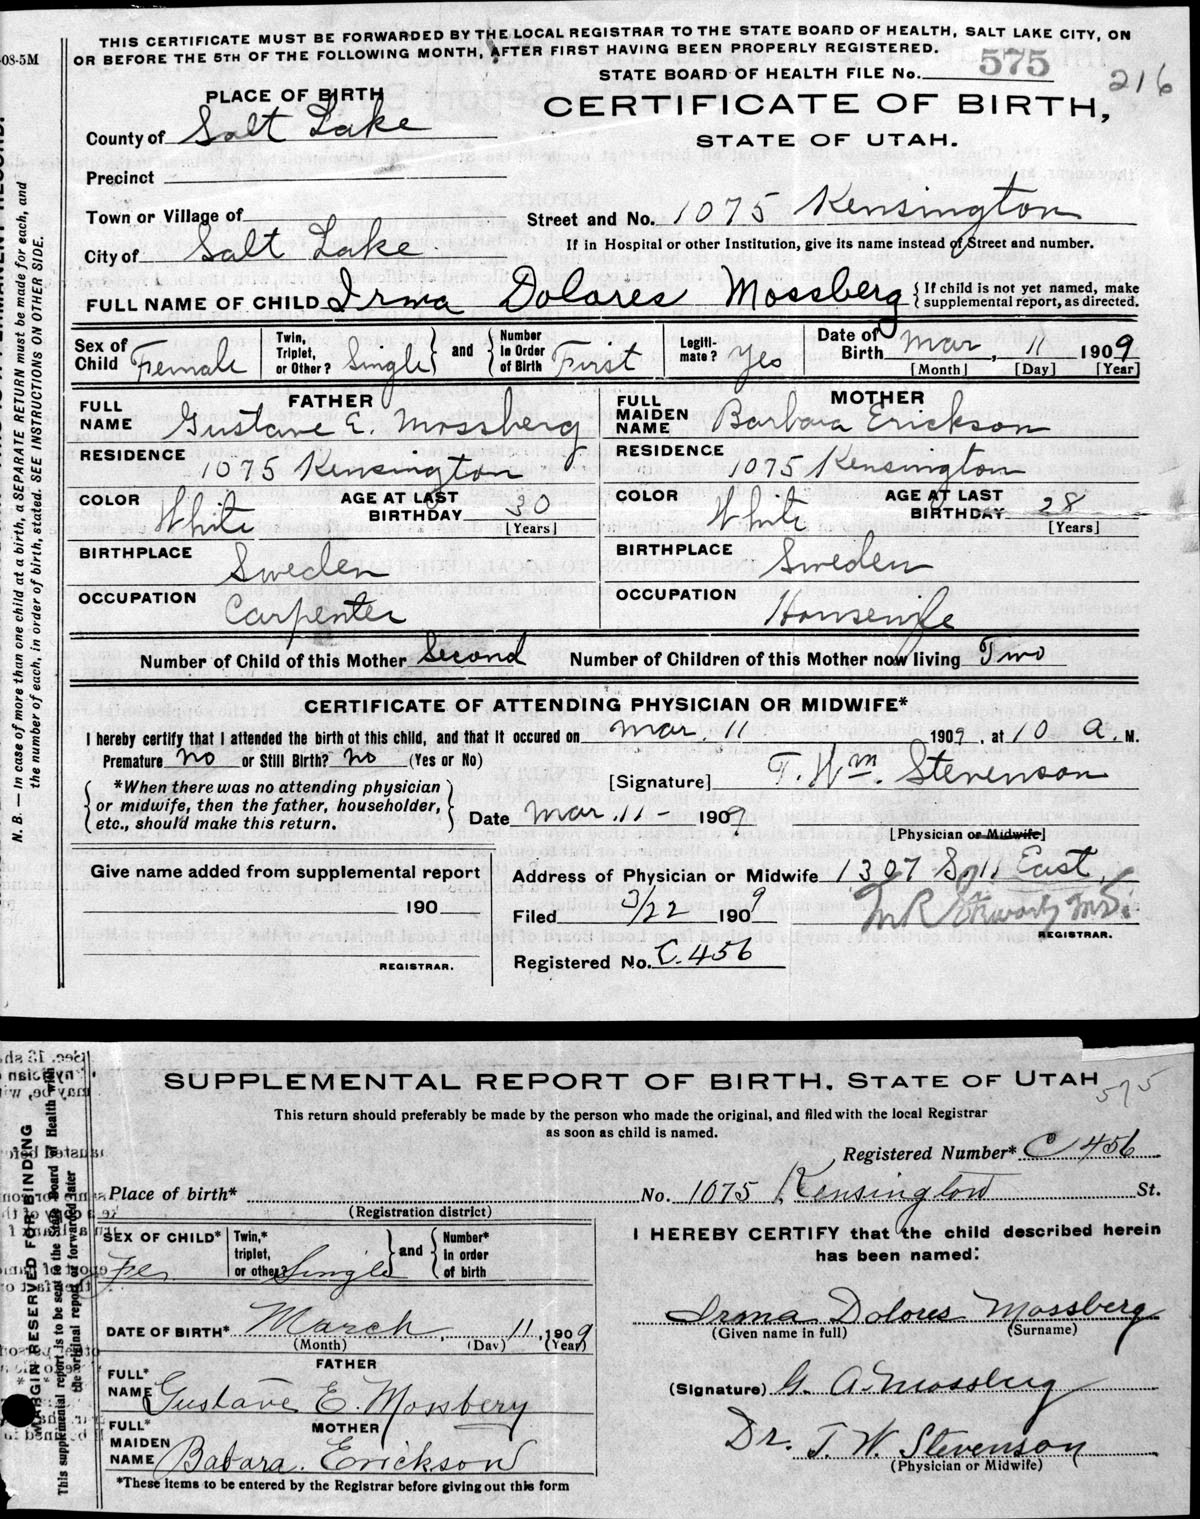 THIS CERTIFICATE MUST BE FORWARDED BY THE LOCAL REGISTRAR TO THE STATE BOARD OF HEALTH, SALT LAKE CITY, ON
OR BEFORE THE 5TH OF THE FOLLOWING MONTH, AFTER FIRST HAVING BEEN PROPERLY REGISTERED.
08-5M
STATE BOARD OF HEALTH FILE No. 575
216
PLACE OF BIRTH
CERTIFICATE OF BIRTH,
STATE OF UTAH.
County of Salt Lake
Precinct
Town or Village of
Street and No. 1075 Kensington
City of Salt Lake
If in Hospital or other Institution, give its name instead of Street and number.
FULL NAME OF CHILD Irma Dolores Mossberg { If child is not yet named, make
supplemental report, as directed.
Sex of Child Female
Twin, Triplet, or Other? Single and Number in Order of Birth First
Legitimate? Yes
Date of Birth Mar, 11 1909
[Month] [Day] [Year]
FATHER
FULL NAME Gustave E. Mossberg
RESIDENCE 1075 Kensington
COLOR White AGE AT LAST BIRTHDAY 30
[Years]
BIRTHPLACE Sweden
OCCUPATION Carpenter
MOTHER
FULL MAIDEN NAME Barbara Erickson
RESIDENCE 1075 Kensington
COLOR White AGE AT LAST BIRTHDAY 28
[Years]
BIRTHPLACE Sweden
OCCUPATION Housewife
Number of Child of this Mother Second Number of Children of this Mother now living Two
CERTIFICATE OF ATTENDING PHYSICIAN OR MIDWIFE*
I hereby certify that I attended the birth of this child, and that it occured on Mar. 11 1909, at 10 A. M.
Premature No or Still Birth? No (Yes or No)
[Signature] T. Wm. Stevenson
*When there was no attending physician
or midwife, then the father, householder,
etc., should make this return.
Date Mar. 11- 1909
[Physician or Midwife]
Address of Physician or Midwife 1307 So 11 East
Give name added from supplemental report
190
REGISTRAR.
Filed 3/22 1909
REGISTRAR.
Registered No. C. 456
N. B. — In case of more than one child at a birth, a SEPARATE RETURN must be made for each, and
the number of each, in order of birth, stated. SEE INSTRUCTIONS ON OTHER SIDE.
SUPPLEMENTAL REPORT OF BIRTH. STATE OF UTAH
575
This return should preferably be made by the person who made the original, and filed with the local Registrar
as soon as child is named.
Registered Number* C 456
Place of birth* No. 1075 Kensington St.
(Registration district)
SEX OF CHILD* Fe.
Twin,* triplet, or other? Single and Number* in order of birth
DATE OF BIRTH* March 11, 1909
(Month) (Day) (Year)
FATHER
FULL* NAME Gustave E. Mossberg
MOTHER
FULL* MAIDEN NAME Babara. Erickson
*These items to be entered by the Registrar before giving out this form
I HEREBY CERTIFY that the child described herein
has been named:
Irma Dolores Mossberg
(Given name in full) (Surname)
(Signature) G. A. Mossberg
Dr. T. W. Stevenson
(Physician or Midwife)
MARGIN RESERVED FOR BINDING
This supplemental report is to be sent to the State Board of Health with
the original report or forwarded later